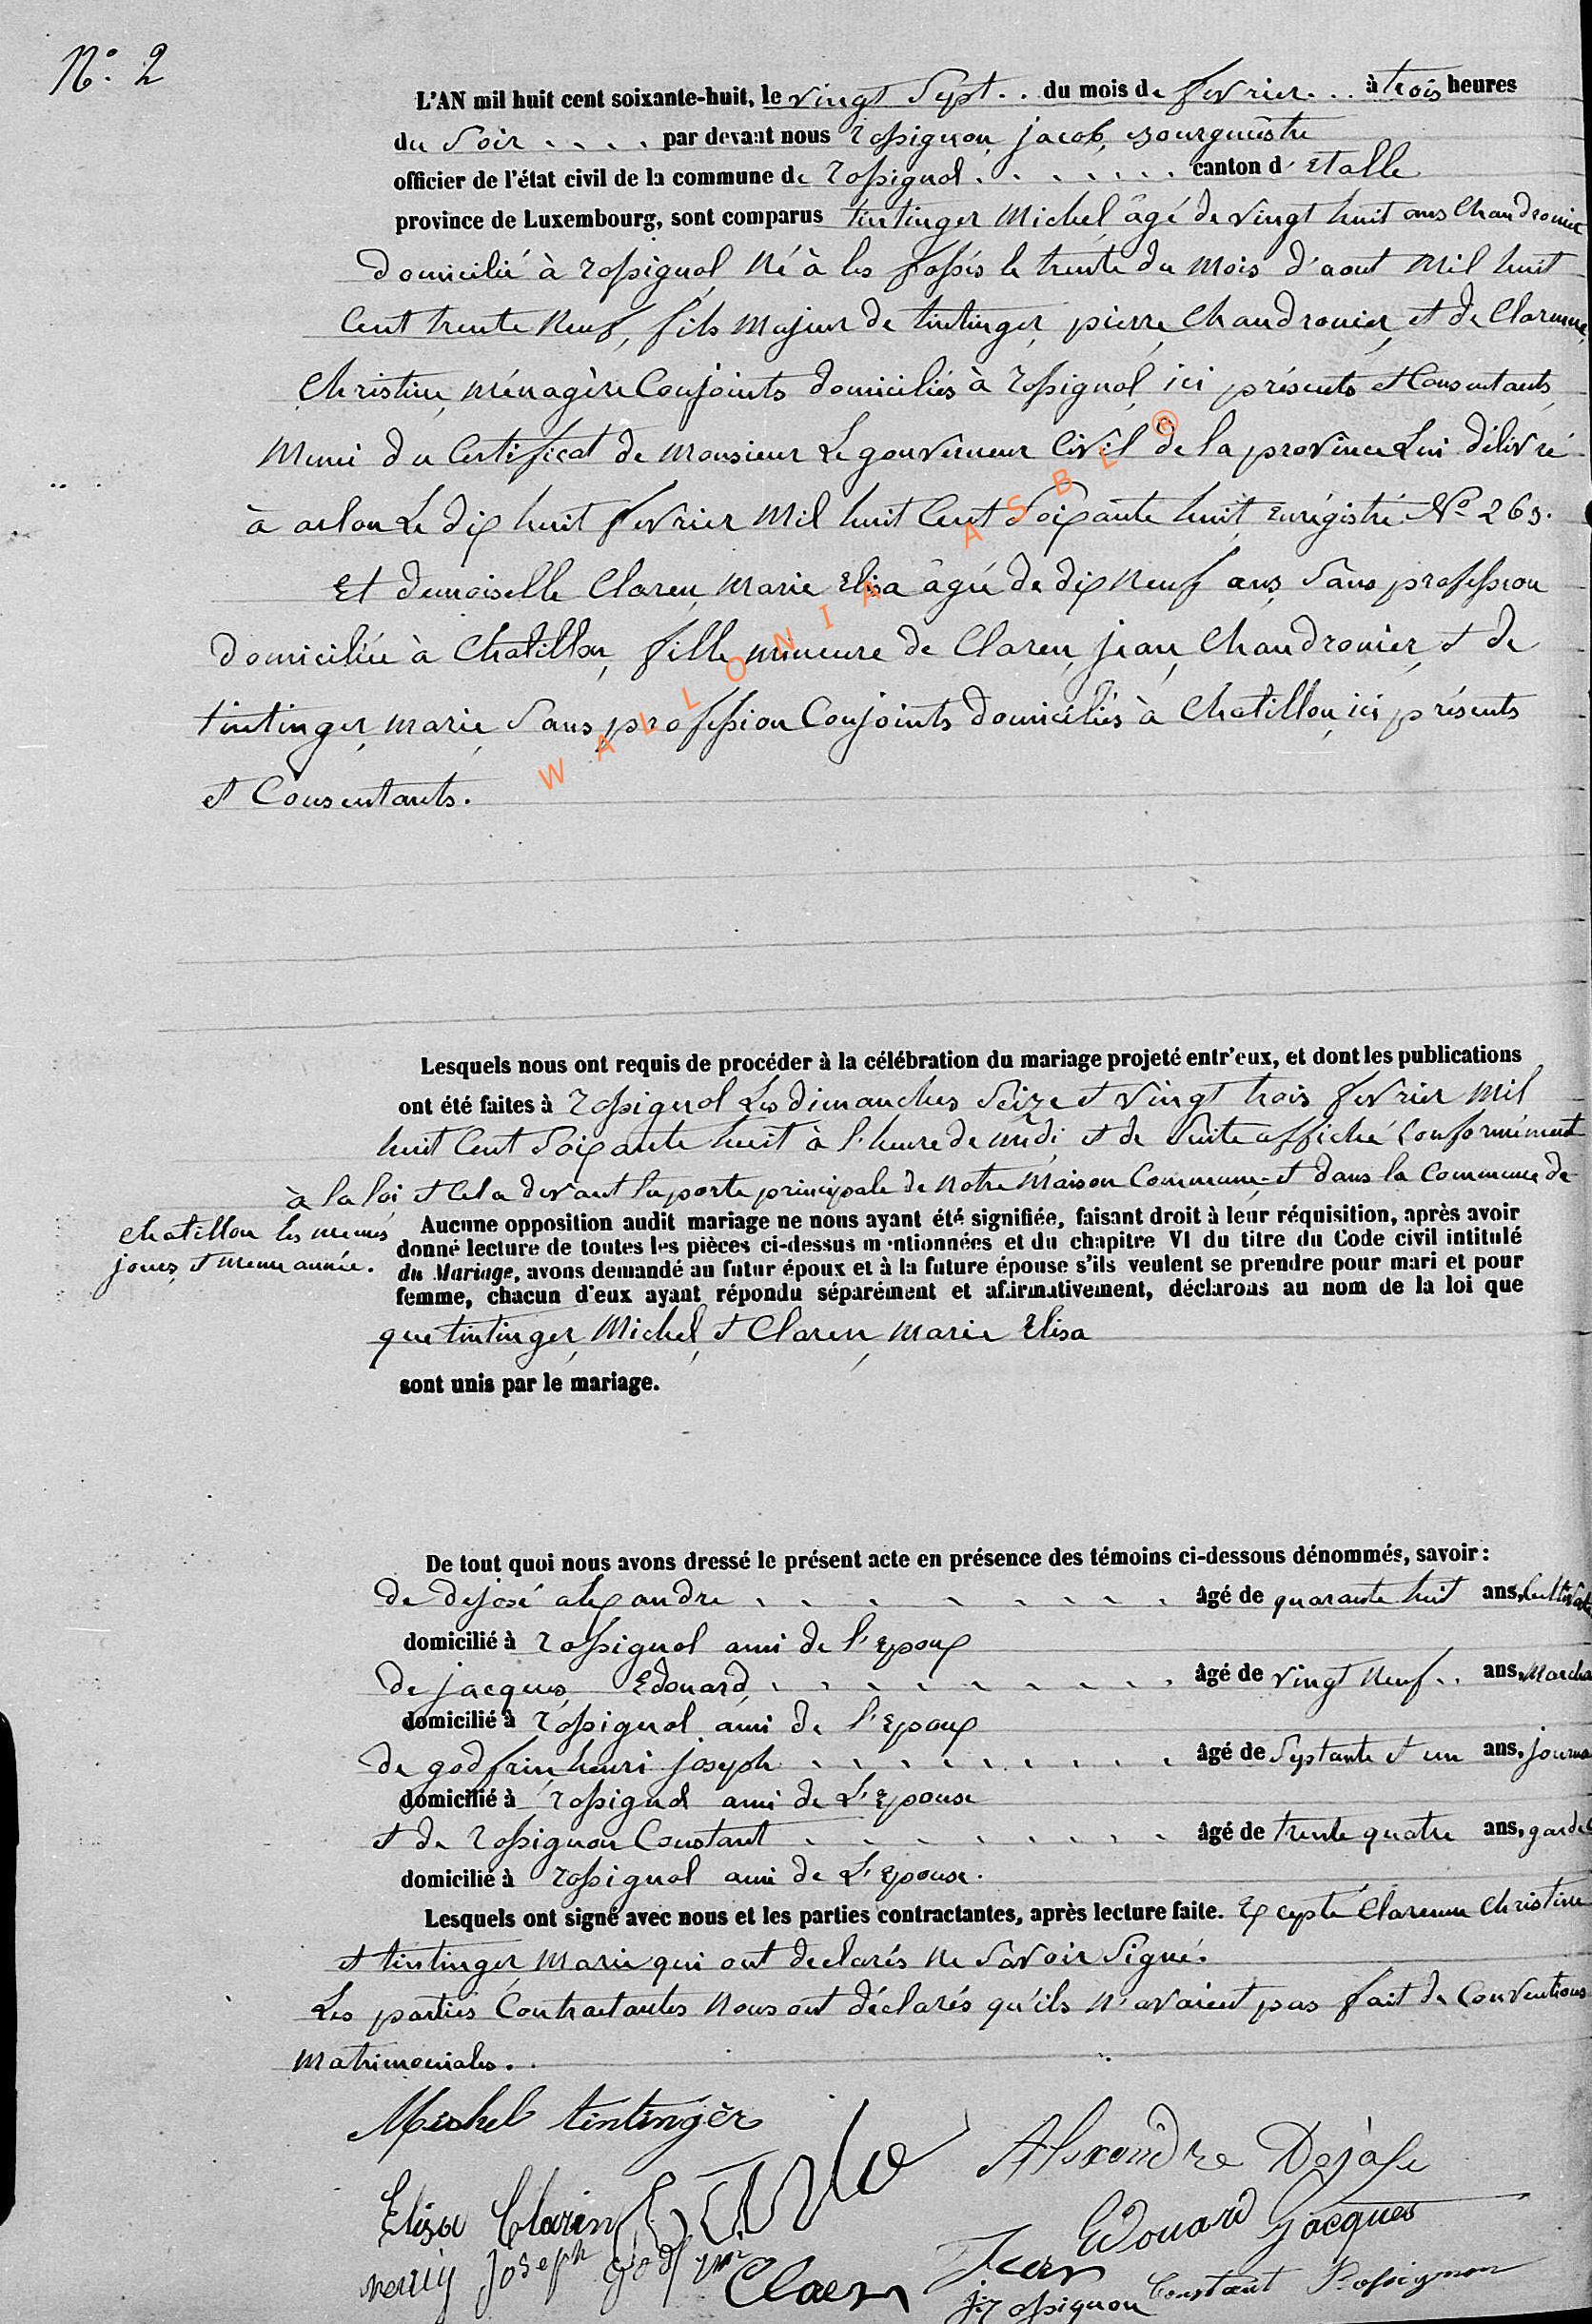 N.° 2
L'AN mil huit cent soixante-huit, le vingt Sept . . du mois de fevrier . . . à trois heures
du Soir . . . . par devant nous rossignon, jacob, bourguestre
officier de l'état civil de la commune de rossignol . . . . . . . canton d' Etalle
province de Luxembourg, sont comparus tintinger Michel âgé de vingt huit ans Chaudronier
domicilié à rossignol, Né à les fossés le trente du Mois d'aout Mil huit
Cent trente Neuf, fils Majeur de tintinger, pierre, Chaudronier, et de Claremne,
Christine, Ménagère Conjoints domiciliés à rossignol, ici présents et Consentants,
Muni du Certificat de Monsieur Le gouverneur Civil de la province Lui délivré
à arlon Le dix huit fevrier Mil huit Cent Soixante huit, enrégistré N° 265.
Et demoiselle Claren, Marie Elisa âgée de dix Neuf ans, Sans profession
domiciliée à Chatillon, fille mineure de Claren, jean, Chaudronier, et de
tintinger, marie, Sans profession Conjoints domiciliés à Chatillon, ici présents
et Consentants.
WALLONIA ASBL ®
Lesquels nous ont requis de procéder à la célébration du mariage projeté entr'eux, et dont les publications
ont été faites à rossignol Les dimanches Seize et vingt trois fevrier Mil
huit Cent Soixante huit à l'heure de midi et de Suite affiché Conformément
à la loi, et Cela devant la porte principale de Notre Maison Commune et dans la Commune de
chatillon les memes
jours, et meme année.
Aucune opposition audit mariage ne nous ayant été signifiée, faisant droit à leur réquisition, après avoir
donné lecture de toutes les pièces ci-dessus mentionnées et du chapitre VI du titre du Code civil intitulé
du Mariage, avons demandé au futur époux et à la future épouse s'ils veulent se prendre pour mari et pour
femme, chacun d'eux ayant répondu séparément et affirmativement, déclarons au nom de la loi que
que tintinger, Michel, et Claren, Marie Elisa
sont unis par le mariage.
De tout quoi nous avons dressé le présent acte en présence des témoins ci-dessous dénommés, savoir :
de dejosé alexandre . . . . . . . . âgé de quarante huit ans, Cultivate
domicilié à rossignol ami de l'Epoux
de jacques, Edouard, . . . . . . . . . âgé de vingt Neuf . . ans, Marcha
domicilié à rossignol ami de l'Epoux
de godfrin, henri joseph . . . . . . . . âgé de Septante et un ans, journa
domicilié à rossignol ami de L'Epouse
et de rossignon Constant . . . . . . . . âgé de trente quatre ans, garde
domicilié à rossignol ami de L'Epouse.
Lesquels ont signé avec nous et les parties contractantes, après lecture faite. Excepté Claremne Christine
et tintinger Marie qui ont declarés Ne Savoir Signé.
Les parties Contractantes Nous ont déclarés qu'ils N'avaient pas fait de Conventions
Matrimoniales.
Michel tintinger
Alexandre Dejosé
Elisa Claren
Edouard Jacques
henriy joseph godfrin
Claen Jean
Constant Rossignon
j. rossignon